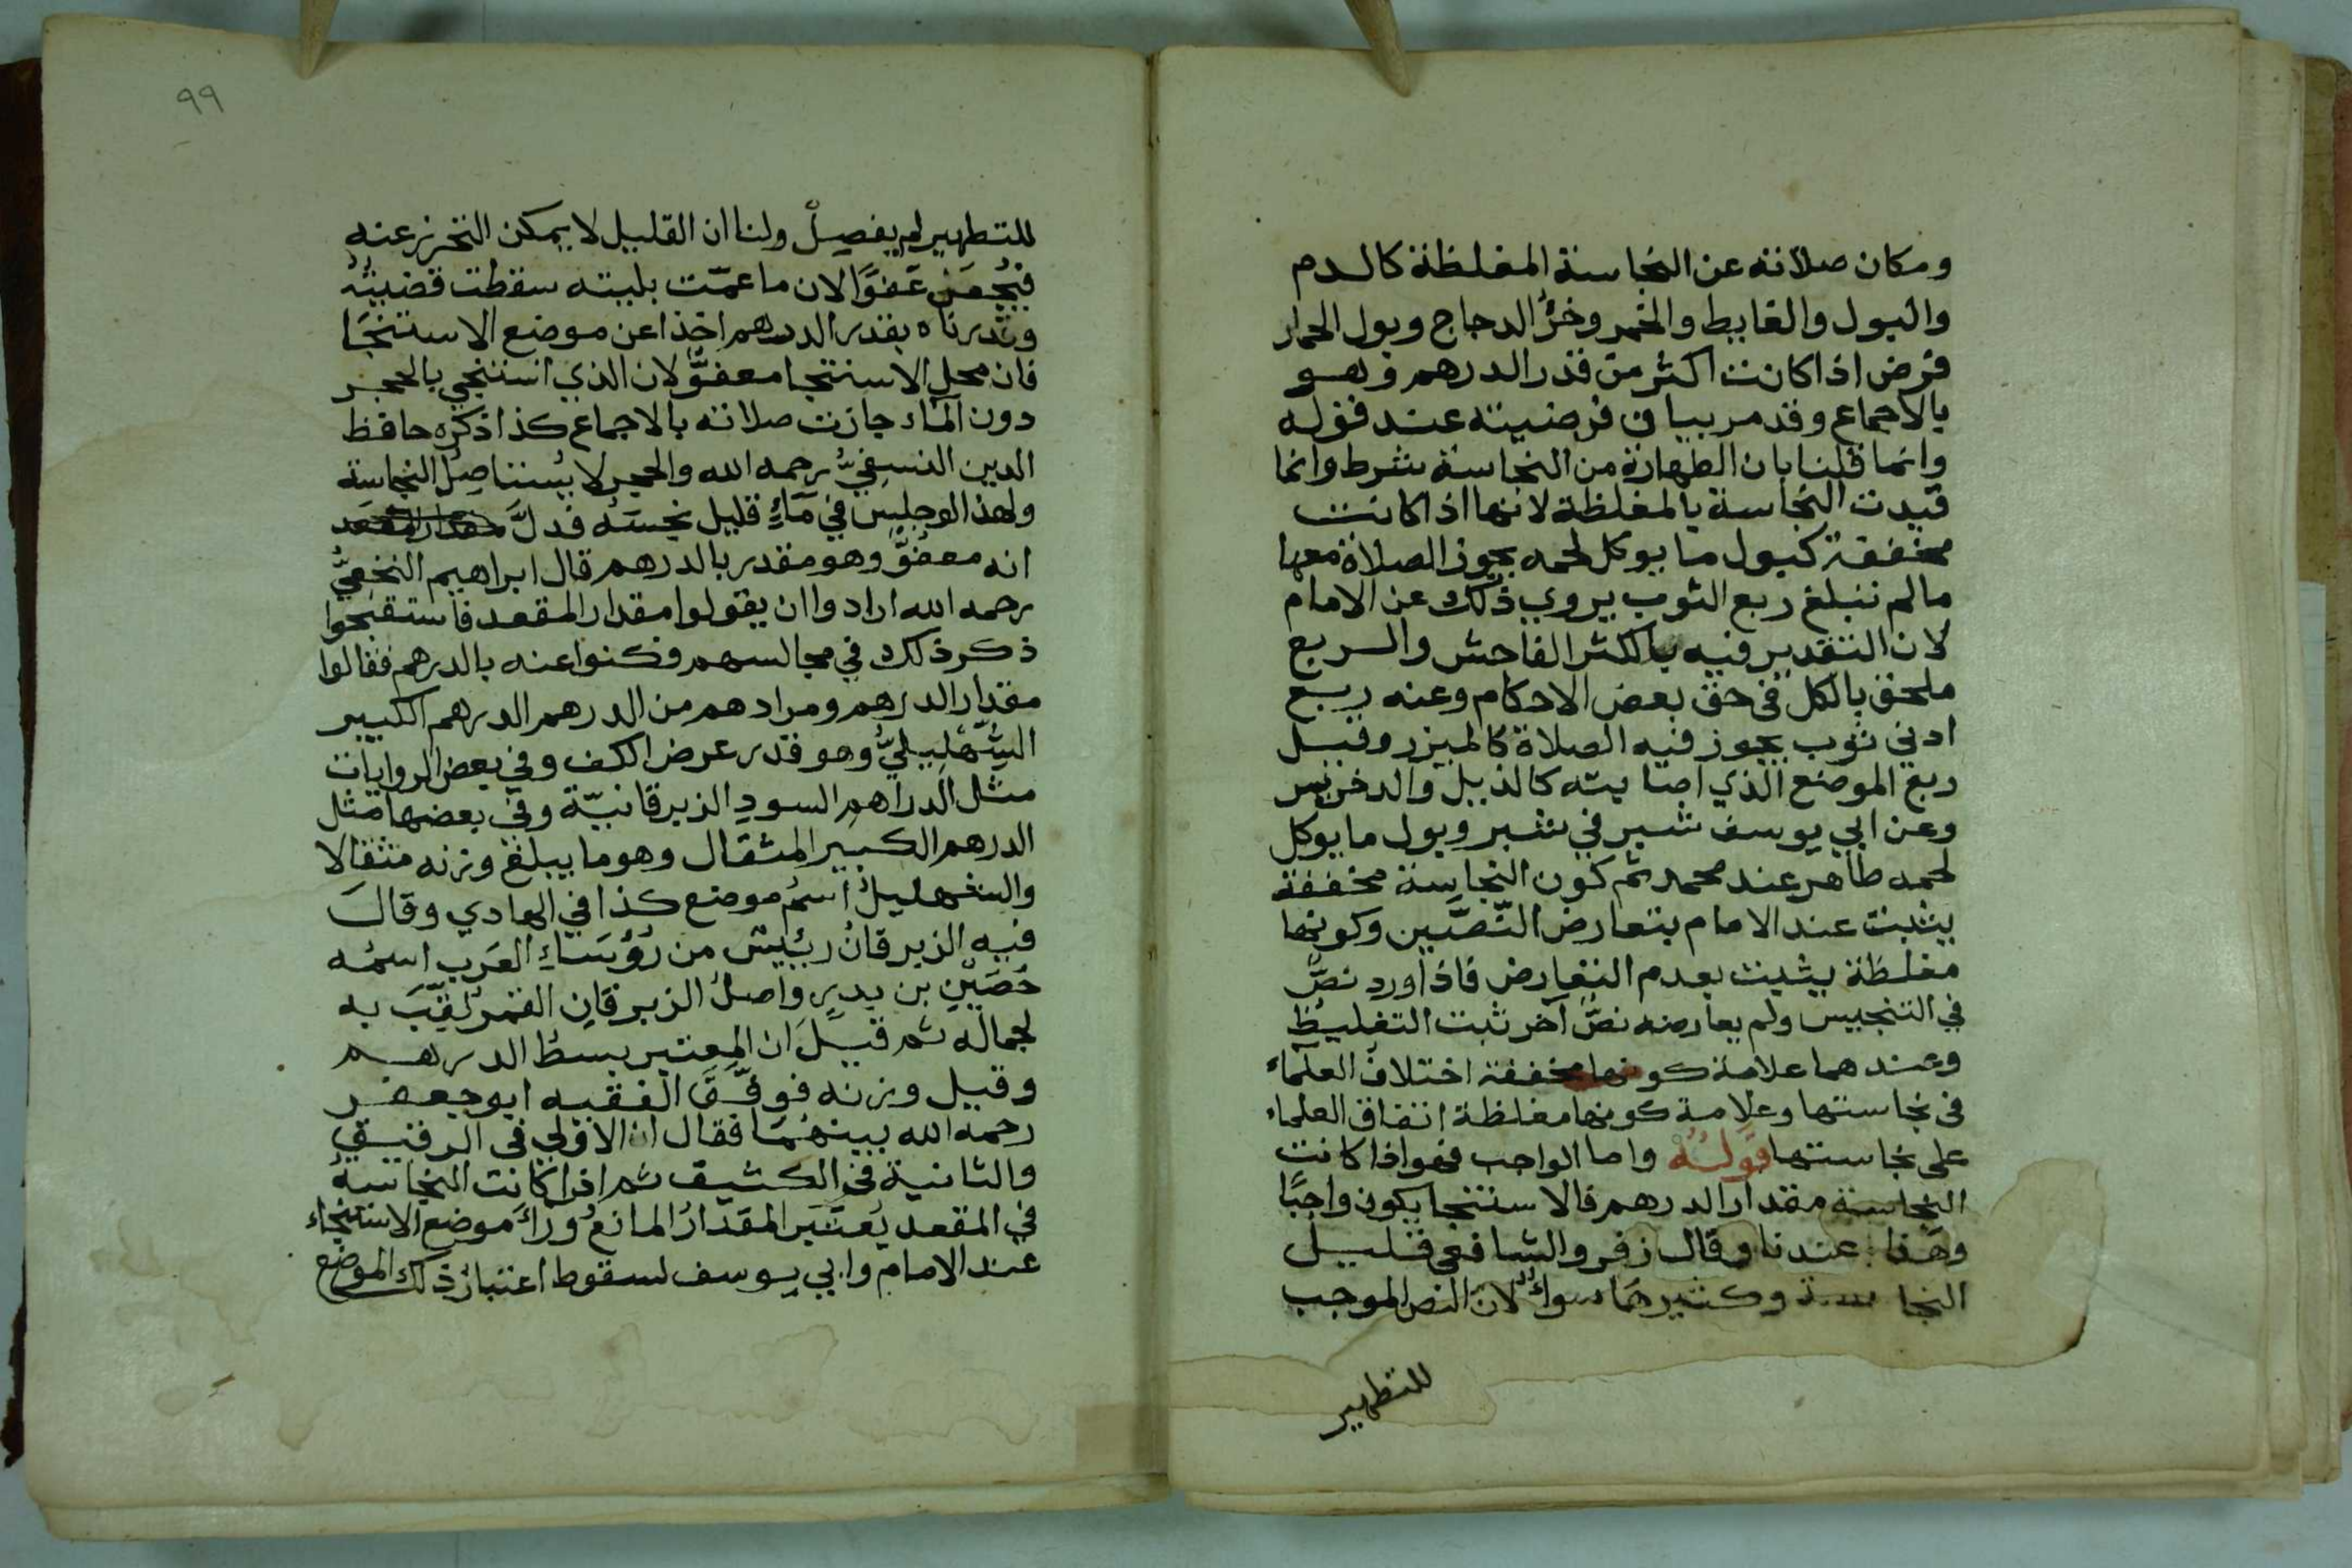 ومكان صلاته عن النجاسة المغلظة كالدم
والبول والغايط والخمر وخرُّ الدجاج وبول الحمار
فرض اذا كانت اكثر من قدر الدرهم وهو
بالاجماع وقد مر بيان فرضيته عند قوله
وانما قلنا بان الطهارة من النجاسة شرط وانما
قيدت النجاسة بالمغلظة لانها اذا كانت
مخففة كبول ما يوكل لحمه يجوز الصلاة معها
مالم تبلغ ربع الثوب يروي ذلك عن الامام
لان التقدير فيه بالكثر الفاحش والربع
ملحق بالكل في حق بعض الاحكام وعنه ربع
ادني ثوب يجوز فيه الصلاة كالميزر وقيل
ربع الموضع الذي اصابته كالذيل والدخريس
وعن ابي يوسف شبر في شبر وبول ما يوكل
لحمه طاهر عند محمد ثم كون النجاسة مخففة
يثبت عند الامام بتعارض النّصَّين وكونها
مغلظة يثبت بعدم التعارض فاذا ورد نصٌّ
في التنجيس ولم يعارضه نصٌّ آخر ثبت التغليظ
وعندهما علامة كونها مخففة اختلاف العلماء
في نجاستها وعلامة كونها مغلظة اتفاق العلماء
على نجاستها قوله واما الواجب فهو اذا كانت
النجاسة مقدار الدرهم فالاستنجا يكون واجبًا
وهذا عندنا وقال زفر والشافعي قليل
النجاسة وكثيرها سواءٌ لان النص الموجب
للتطهير
٩٩
للتطهير لم يفصِلْ ولنا ان القليل لا يمكن التحرز عنه
فيُجعَل عَفوًا لان ما عمّت بليته سقطت قضيتُهُ
وقدرناه بقدر الدرهم اخذا عن موضع الاستنجَا
فان محل الاستنجا معفوٌّ لان الذي استنجي بالحجر
دون الماء جازت صلاته بالاجماع كذا ذكره حافظ
الدين النسفيُّ رحمه الله والحجر لا يُستاصِلُ النجاسة
ولهذا لو جلسَ في مَاءٍ قليل نجسَه فدلَّ
انه معفوٌّ وهو مقدر بالدرهم قال ابراهيم النخعيُّ
رحمه الله ارادوا ان يقولوا مقدار المقعد فاستقبحوا
ذكر ذلك في مجالسهم فكنوا عنه بالدرهم فقالوا
مقدار الدرهم ومرادهم من الدرهم الدرهم الكبير
الشّهْلِيليُّ وهو قدر عرض الكف وفي بعض الروايات
مثل الدراهم السودِ الزبرقانيّة وفي بعضها مثل
الدرهم الكبير المثقال وهو ما يبلغ وزنه مثقالا
والشهليلُ اسمُ موضع كذا في الهادي وقالَ
فيه الزبرقانُ رئيس من رُؤَسَاءِ العَرَبِ اسمُه
حُصَيْنِ بن بدرٍ واصلُ الزبرقانِ القمرُ لقِّبَ به
لجماله ثم قيلَ ان المعتبر بسطُ الدرهم
وقيل وزنه فوفَّقَ الفقيه ابو جعفر
رحمه الله بينهُمَا فقال ان الاولي في الرقيق
والثانية في الكثيف ثم اذا كانت النجاسةُ
في المقعد يُعتَبَر المقدَارُ المانعُ ورَاءَ موضع الاستنجاء
عند الامام وابي يوسف لسقوط اعتبار ذلك الموضع